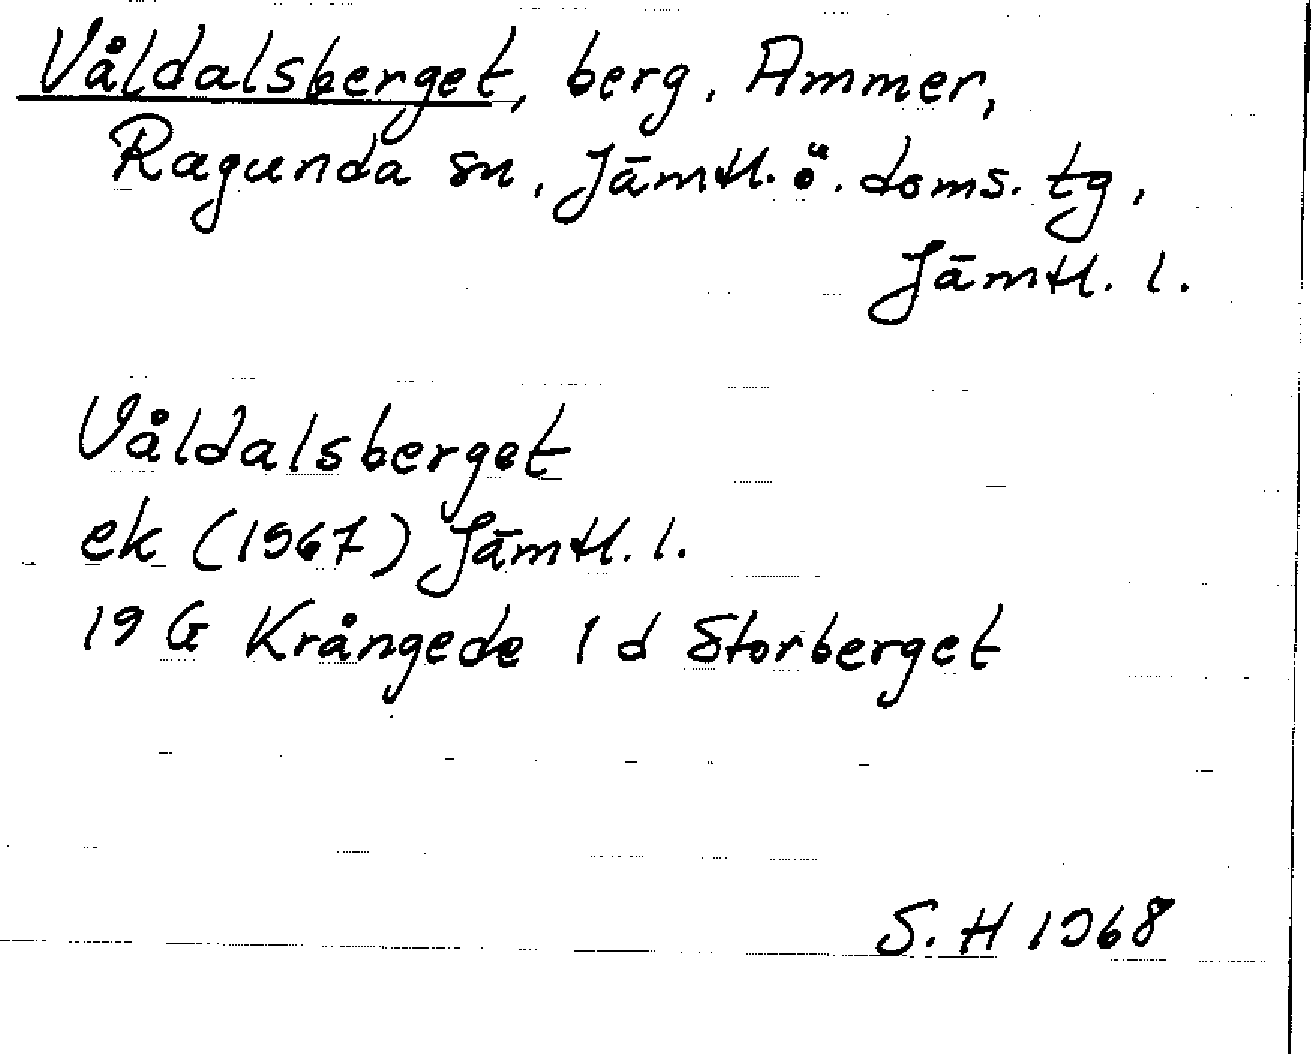 Våldalsberget, berg, Ammer,
Ragunda sn, Jämtl. ö. doms. tg,
Jämtl. l.
Våldalsberget
ek (1967) Jämtl. l.
19 G Krångede 1 d Storberget
S. H 1968